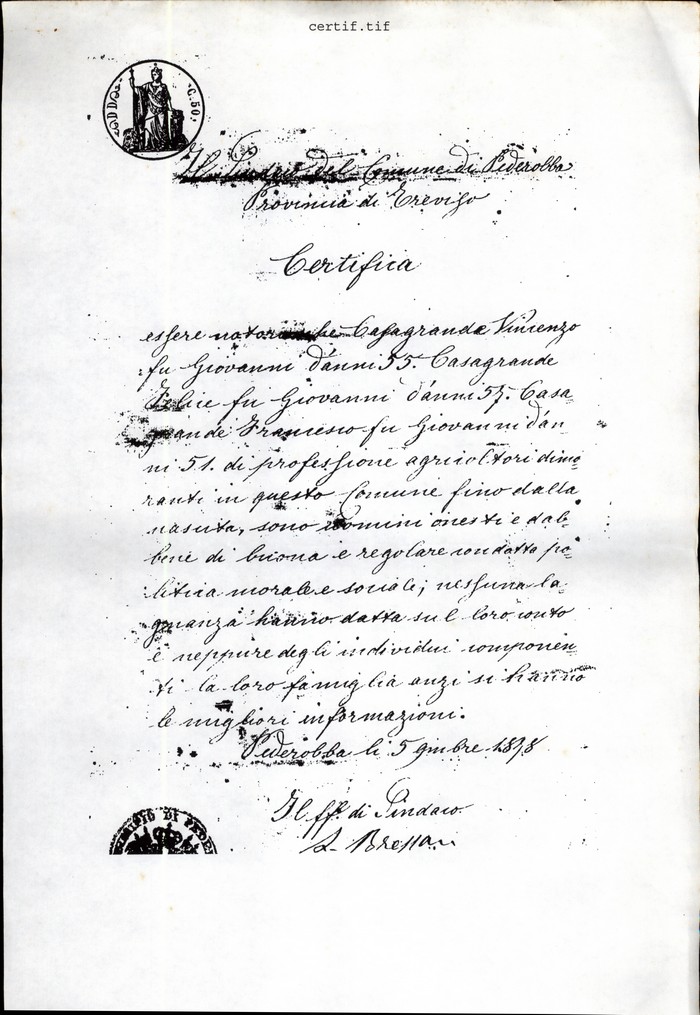 certif.tif
C. 50.
Il Sindaco del Comune di Pederobba
Provincia di Treviso
Certifica
essere notorio che Casagrande Vincenzo
fu Giovanni d'anni 55. Casagrande
Felice fu Giovanni d'anni 57. Casa
grande Francesco fu Giovanni d'an
ni 51. di professione agricoltori dimo-
ranti in questo Comune fino dalla
nascita, sono uomini onesti e dab-
bene di buona e regolare condatta po-
litica morale e sociale; nessuna la-
gnanza hanno datta sul loro conto
e neppure degli individui componen-
ti la loro famiglia anzi si hanno
le migliori informazioni.
Pederobba li 5 9mbre 1878
Il ff. di Sindaco
MUNICIPIO DI PEDER